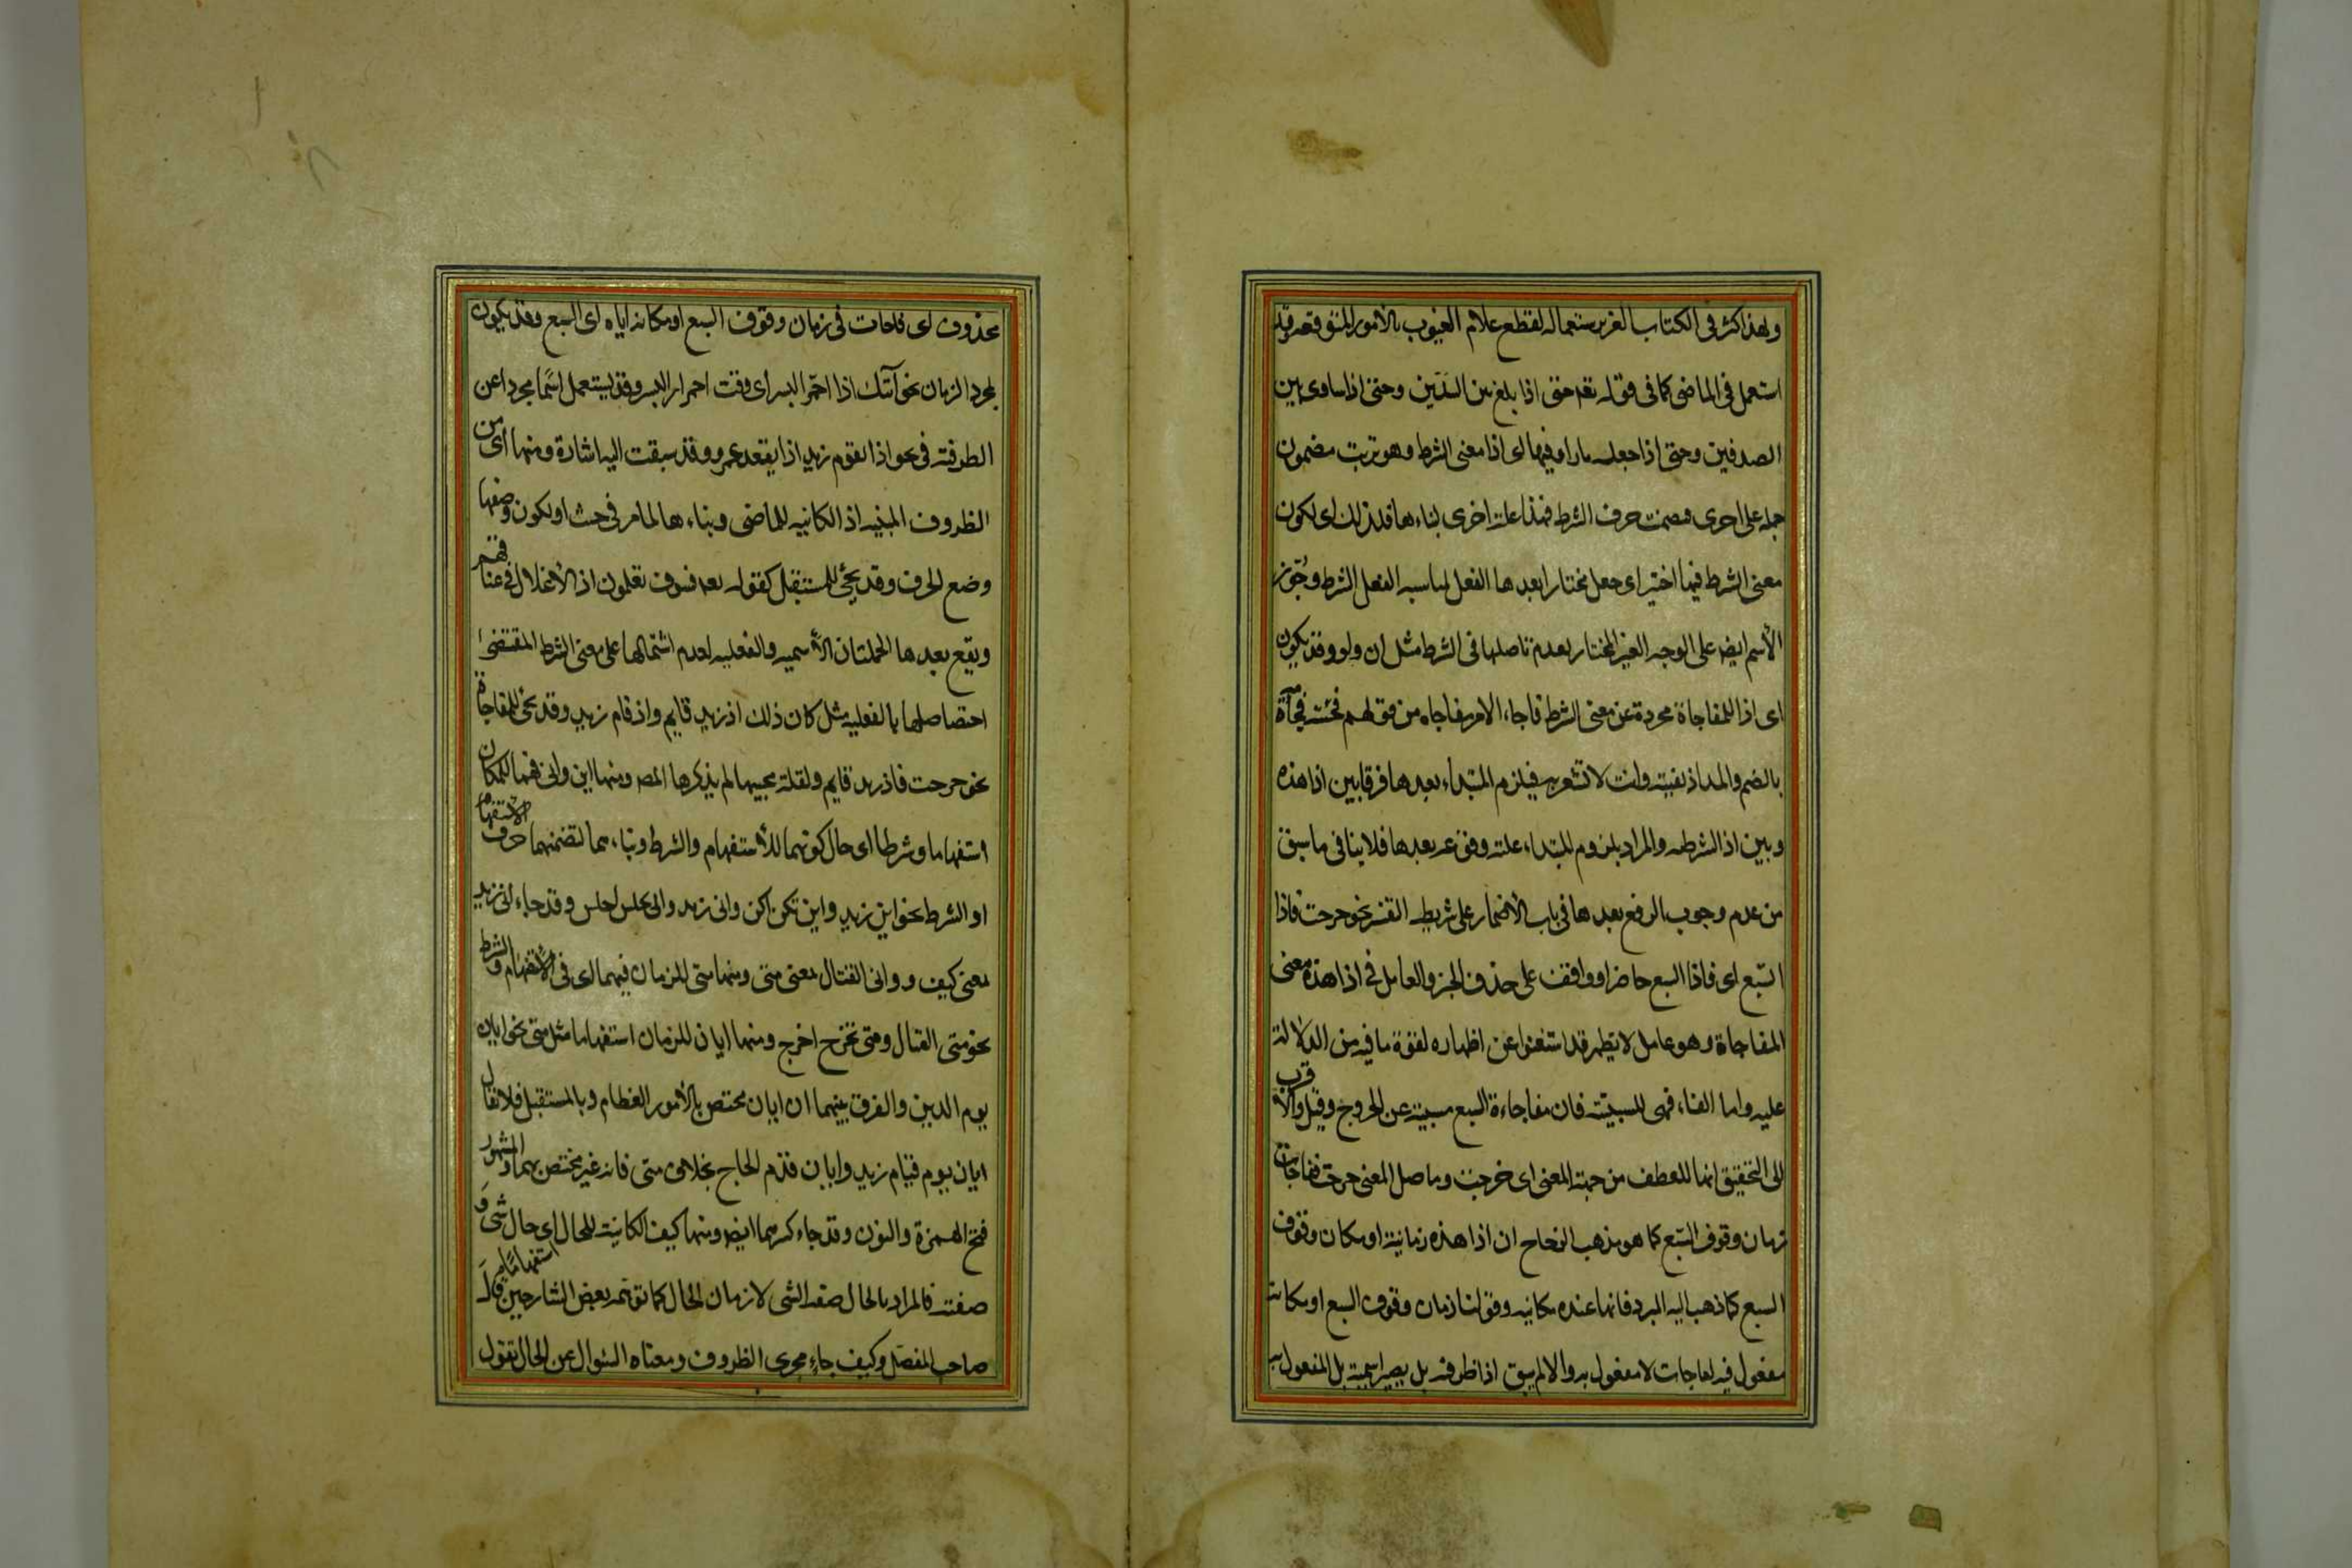 ولهذا كثر فى الكتاب العزيز ستعماله لقطع علام الغيوب بالامور المتوقعه وقد
استعمل فى الماضى كما فى قوله تعه حتى اذا بلغ بين السّدّين وحتى اذا ساوى بين
الصدفين وحتى اذا جعله نارا وفيها اى اذا معنى الشرط وهو ترتب مضمون
جمله على اخرى فضمنت حرف الشرط فهذا علته اخرى لبناءها فلذلك اى لكون
معنى الشرط فيها اختير اى جعل مختارا بعدها الفعل لمناسبه الفعل الشرط وجّوز
الأسم ايض على الوجه الغير المختار لعدم تاصلها فى الشرط مثل ان ولو وقد يكون
اى اذا للمفاجاة مجردة عن معنى الشرط فاجاء الامر مفاجاه من قولهم فجئته فجآة
بالضم والمد اذ لقيته وانت لا تشعر به فيلزم المبتداء بعدها فرقا بين اذا هذه
وبين اذا الشرطه والمراد بلزوم المبتداء غلبته وقوعه بعدها فلا ينافى ما سبق
من عدم وجوب الرفع بعدها فى باب الأضمار على شريطه التفسر نحو خرجت فاذا
السّبع اى فاذا السبع حاضر او واقف على حذف الخبر والعامل فى اذا هذه معنى
المفاجاة وهو عامل لا يظهر قد استغنوا عن اظهاره لقوة ما فيه من الدلالة
عليه واما الفاء فهى للسببيّته فان مفاجاءة السبع مسببة عن الخروج وقيل والاقرب
الى التحقيق انها للعطف من جهة المعنى اى خرجت وماصل المعنى خرجت ففاجات
زمان وقوف السّبع كما هو مذهب الزجاج ان اذا هذه زمانية او مكان وقوف
السبع كما ذهب اليه المبرد فانها عنده مكانيه وقولنا زمان وقوف السبع او مكانه
مفعول فيه لفاجات لا مفعول به والا لم يبق اذا ظرفه بل يصير اسمية بل المفعول به
محذوف اى فاجات فى زمان وقوف السبع او مكانه اياه اى السبع وقد يكون
لمجرد الزمان نحو آتيك اذا احمّر البسر اى وقت احمرار البسر وقد يستعمل اسًما مجردا عن
الظرفته فى نحو اذا يقوم زيد اذا يقعد عمرو وقد سبقت اليه اشارة ومنها اى من
الظروف المبنيه اذ الكائنيه للماضى وبناءها لما مر فى حيث او لكون وضعها
وضع الحرف وقد يجئ للمستقبل كقوله تعه فسوف تعلمون اذ الأغلال فى اعناقهم
ويقع بعدها الجملتان الأسميه والفعليه لعدم اشتمالها على معنى الشرط المقتضى
احتصاصلها بالفعليه مثل كان ذلك اذ زيد قايم واذ قام زيد وقد يجئ للمفاجاة
نحو خرجت فاذ زيد قايم ولقلة مجيها لم يذكرها المصه ومنها اين وانى فهما للمكان
استفهاما وشرطا اى حال كونهما للأستفهام والشرط وبناءهما لتضمنهما حرف الاستفهام
او الشرط نحو اين زيد واين تكن اكن وانى زيد وانى تجلس اجلس وقد جاء انى زيد
بمعنى كيف و وانى القتال بمعنى متى ومنها متى للزمان فيهما اى فى الأستفهام والشرط
نحو متى القتال ومتى تخرج اخرج ومنها ايان للزمان استفهاما مثل متى نحو ايان
يوم الدين والفرق بينهما ان ايان مختص بالأمور العظام وبالمستقبل فلا تقال
ايان يوم قيام زيد وايان قدم الحاج بخلاف متى فانه غير مختص بهما والمشهور
فتح الهمزة والنون وقد جاء كسرهما ايض ومنها كيف الكائنية للحال اى حال شى و
صفته استفهامًا فالمراد بالحال صفه الشى لا زمان الحال كما توهّمه بعض الشارحين قاَلَ
صاحب المفصّل وكيف جاء مجرى الظروف ومعناه السّوال عن الحال تقول